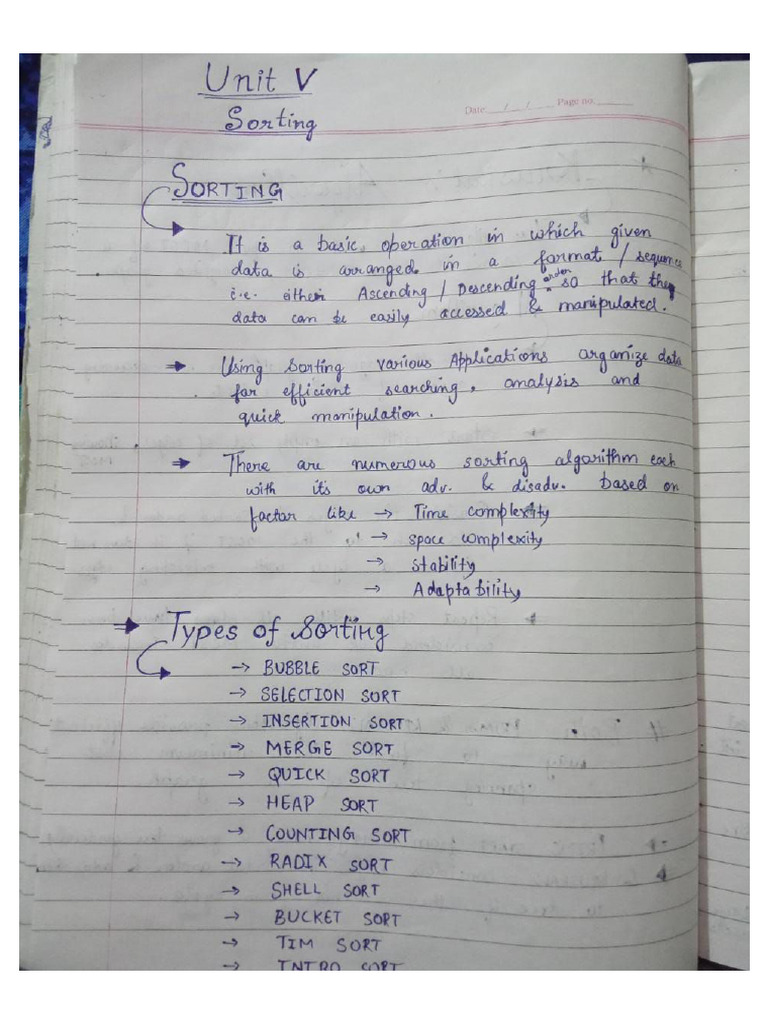 Unit V
Date: __/__/__ Page no: ____
Sorting
SORTING
It is a basic operation in which given
data is arranged in a format / sequence
i.e. either Ascending / Descending order so that the
data can be easily accessed & manipulated.
→ Using Sorting various Applications organize data
for efficient searching, analysis and
quick manipulation.
→ There are numerous sorting algorithm each
with its own adv. & disadv. based on
factor like → Time complexity
→ space complexity
→ stability
→ Adaptability
⇒ Types of Sorting
→ BUBBLE SORT
→ SELECTION SORT
→ INSERTION SORT
→ MERGE SORT
→ QUICK SORT
→ HEAP SORT
→ COUNTING SORT
→ RADIX SORT
→ SHELL SORT
→ BUCKET SORT
→ TIM SORT
→ INTRO SORT